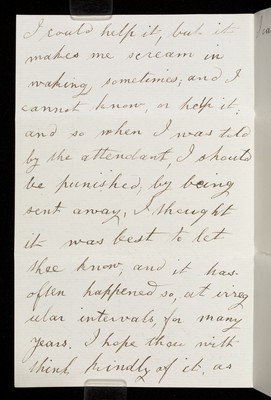 I could help it, but it
makes me scream in
waking, sometimes; and I
cannot know, or help it;
and so when I was told
by the attendant, I should
be punished, by being
sent away, I thought
it was best to let
thee know, and it has
often happened so, at irreg
ular intervals, for many
years. I hope thou wilt
think kindly of it, as